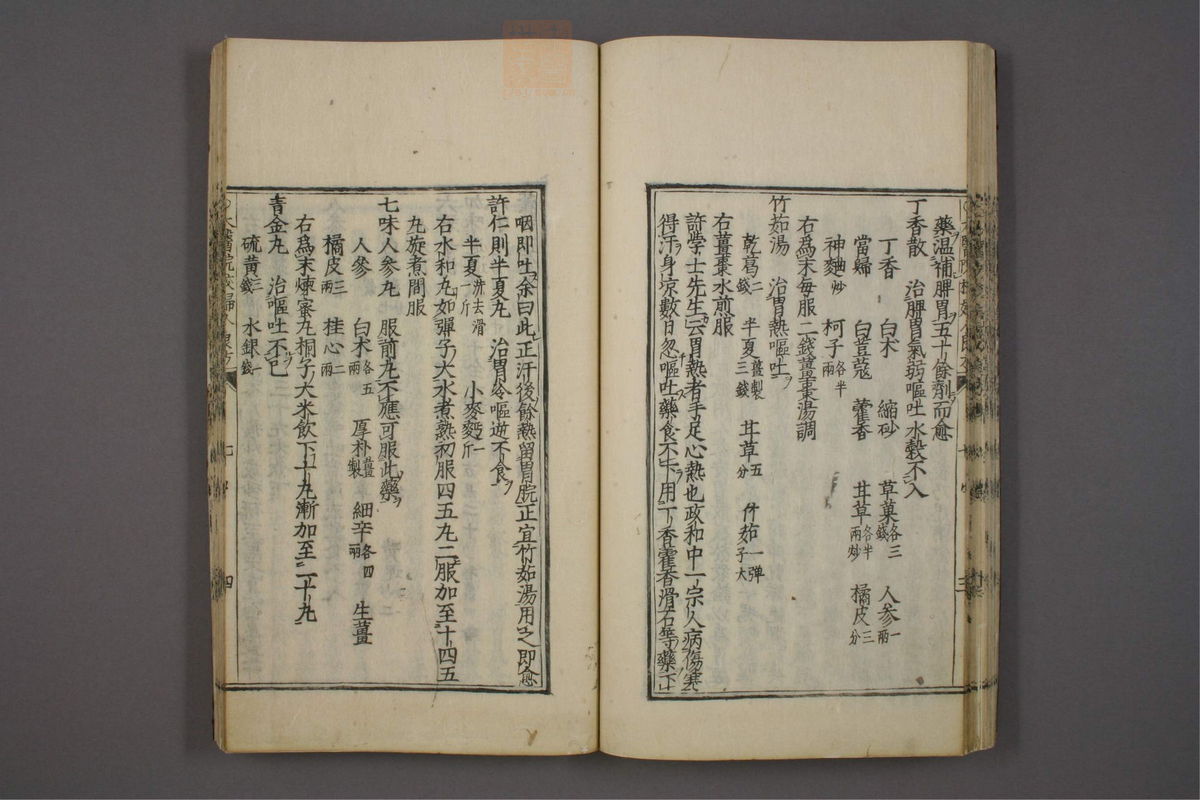 藥温補脾胃五十餘劑而愈
丁香散　治脾胃氣弱嘔吐水穀不入
丁香　白术　縮砂　草菓各三錢　人參一兩
當歸　白豆蔻　藿香　甘草各半兩炒　橘皮三分
神麯炒　柯子各半兩
右爲末每服二錢薑棗湯調
竹茹湯　治胃熱嘔吐
乾葛二錢　半夏薑製三錢　甘草五分　竹茹一弾子大
右薑棗水煎服
許學士先生云胃熱者手足心熱也政和中一宗人病傷寒
得汗身凉數日忽嘔吐藥食不下用丁香藿香滑石等藥下
咽即吐余曰此正汗後餘熱留胃脘正宜竹茹湯用之即愈
許仁則半夏丸　治胃冷嘔逆不食
半夏洗去滑一斤　小麥麪一斤
右水和丸如彈子大水煮熟初服四五丸二服加至十四五
丸旋煮間服
七味人參丸　服前丸不應可服此藥
人參　白术各五兩　厚朴薑製　細辛各四兩　生薑
橘皮三兩　桂心二兩
右爲末煉蜜丸桐子大米飲下十丸漸加至二十丸
青金丸　治嘔吐不已
硫黄三錢　水銀一錢
太醫院校婦人良方
七
四